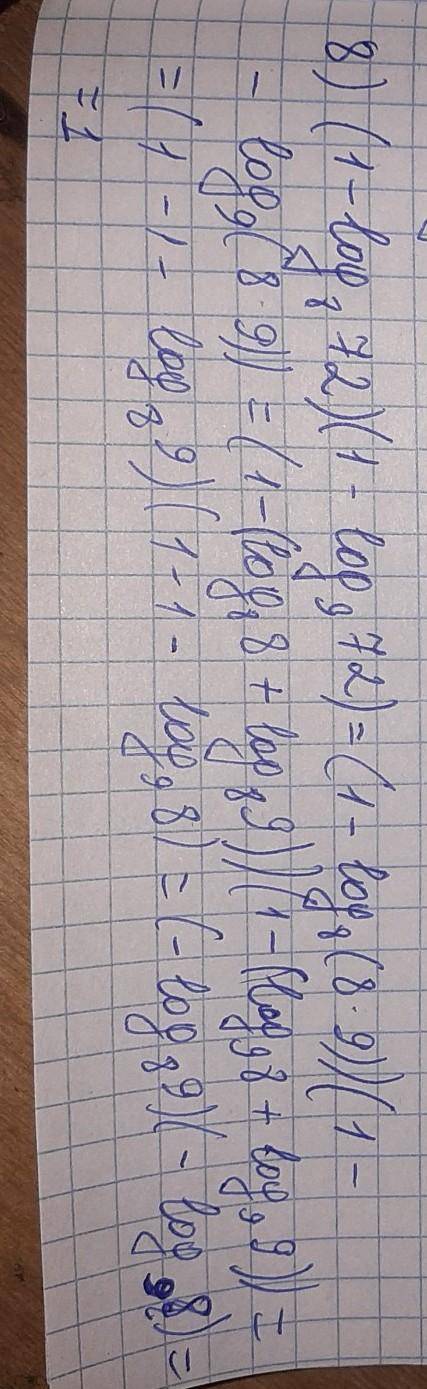 8) (1 - log₈ 72)(1 - log₉ 72) = (1 - log₈(8·9))(1 -
- log₉(8·9)) = (1 - (log₈ 8 + log₈ 9))(1 - (log₉ 8 + log₉ 9)) =
= (1 - 1 - log₈ 9)(1 - 1 - log₉ 8) = (- log₈ 9)(- log₉ 8) =
= 1